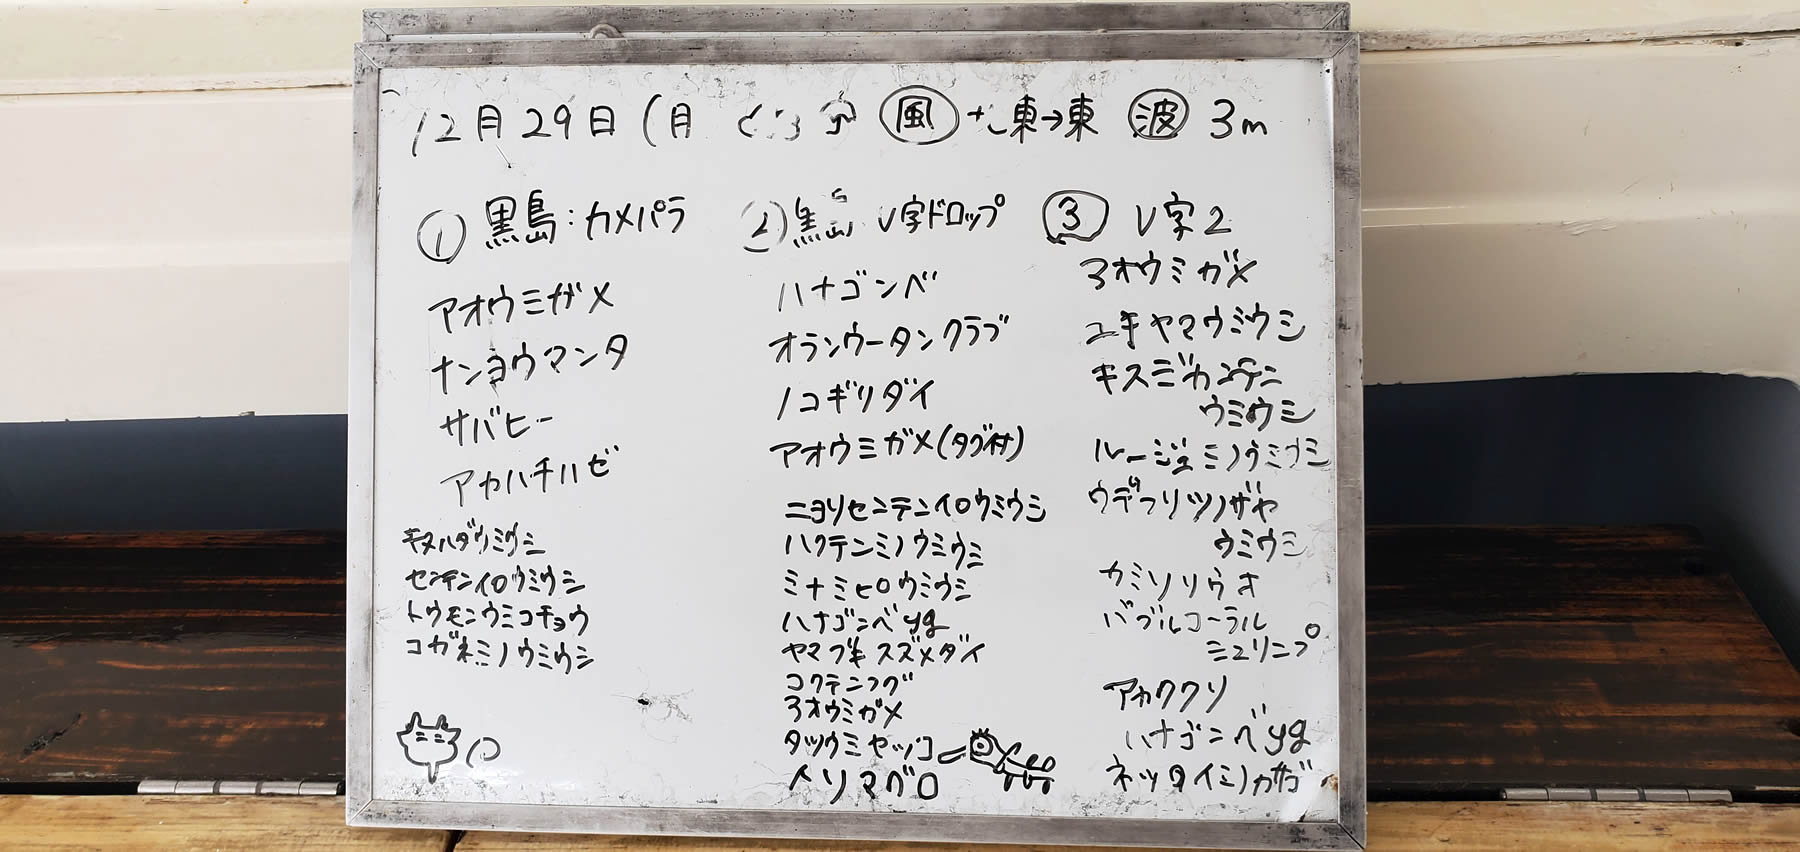 12月29日(月 風 東→東 波 3m
① 黒島:カメパラ
アオウミガメ
ナンヨウマンタ
サバヒー
アカハチハゼ
キヌハダウミウシ
センテンイロウミウシ
トウモンウミコチョウ
コガネミノウミウシ
② 黒島 V字ドロップ
ハナゴンベ
オランウータンクラブ
ノコギリダイ
アオウミガメ(タグ付)
ニヨリセンテンイロウミウシ
ハクテンミノウミウミ
ミナミヒロウミウシ
ハナゴンベyg
ヤマブキスズメダイ
コクテンフグ
アオウミガメ
タツウミヤッコ
イソマグロ
③ V字2
アオウミガメ
ユキヤマウミウシ
キスジカンテン
ウミウシ
ルージュミノウミウシ
ウデフリツノザヤ
ウミウシ
カミソリウオ
バブルコーラル
シュリンプ
アカククリ
ハナゴンベyg
ネッタイミノカサゴ